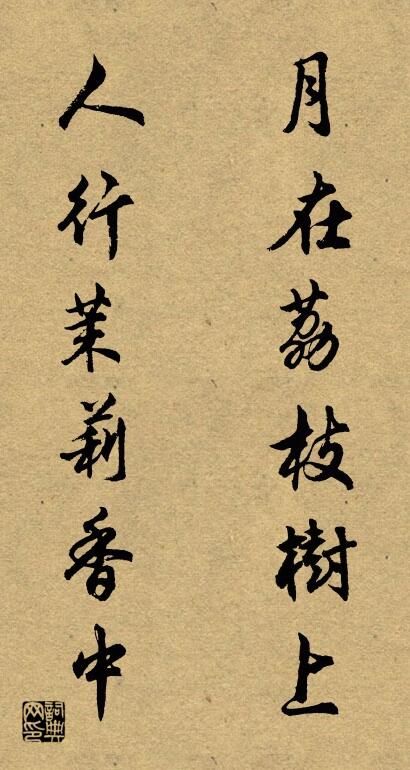 月在荔枝樹上
人行茉莉香中
詞典网印